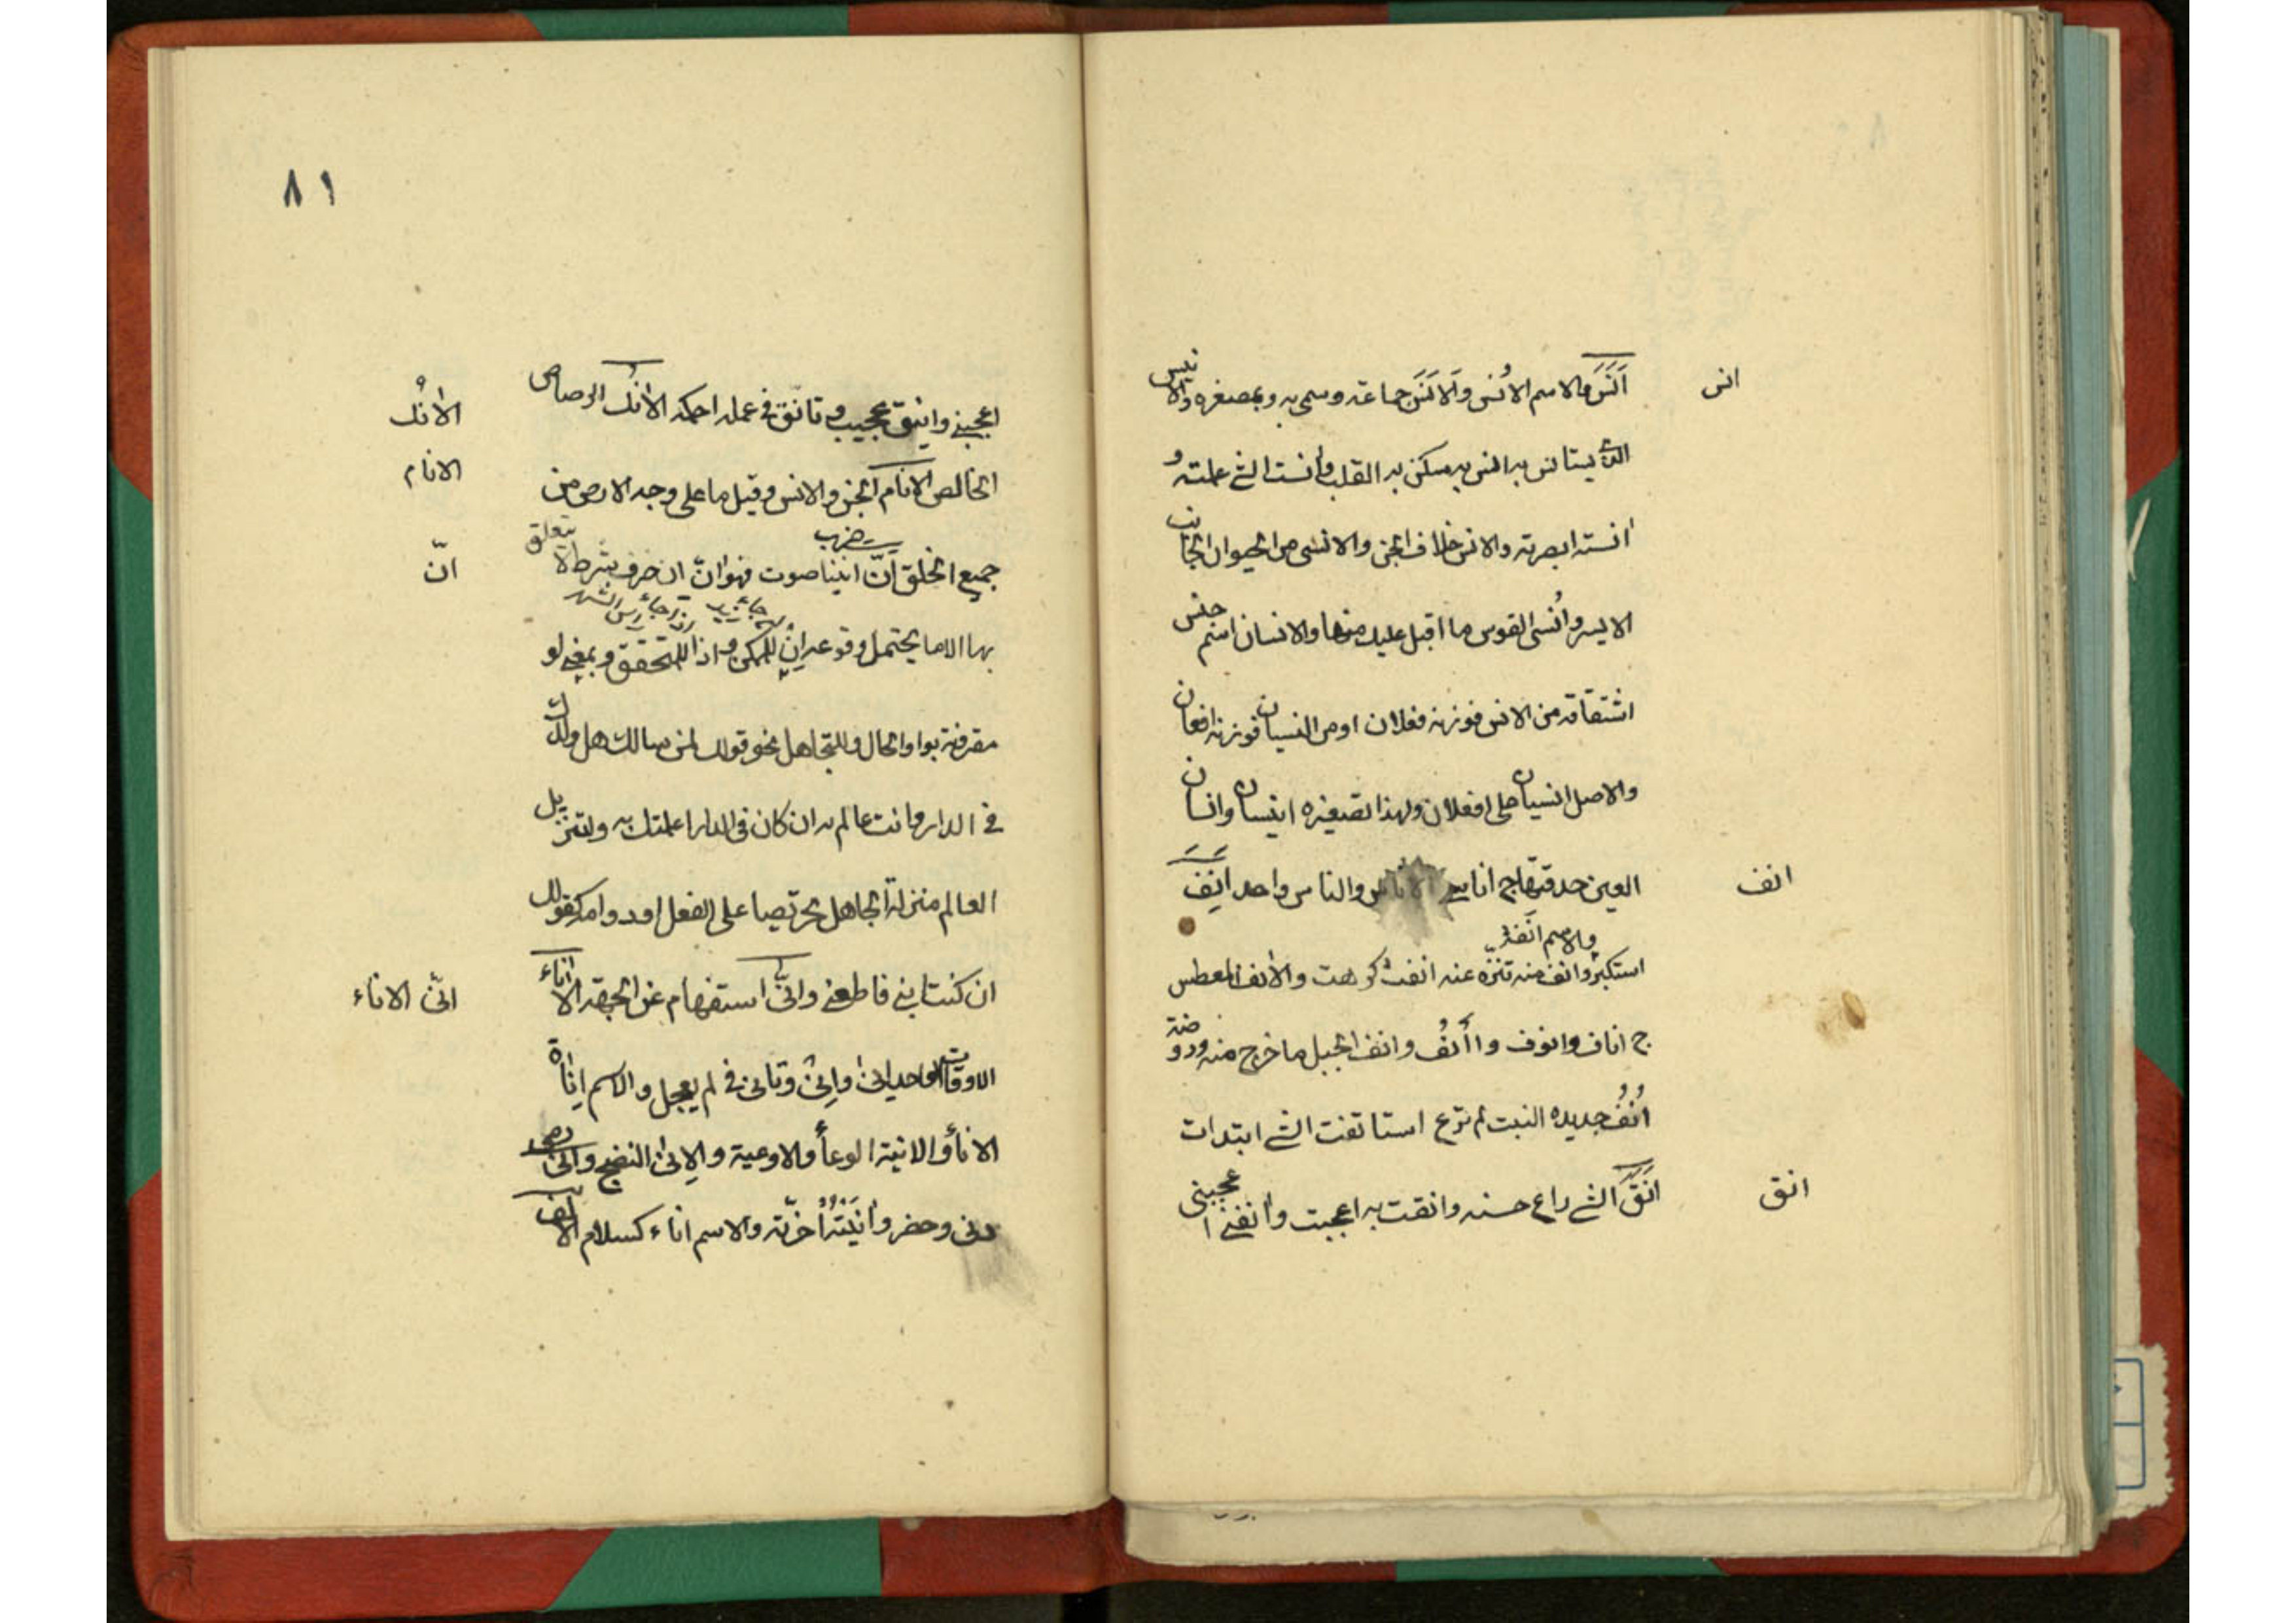 انس
أَنَسَ والاسم الأُنس والأَنَس جماعة وسمي به وبمصغره والانيس
الذي يستانس به انس به سكن به القلب وانست الشئ علمته و
انسته ابصرته والانس خلاف الجن والانسى من الحيوان الجانب
الايسر وأُنسى القوس ما اقبل عليك منها والانسان اسم جنس
اشتقاقه من الانس فوزنه فعلان او من النسيان فوزنه افعان
والاصل انسيان على افعلان ولهذا تصغيره انيسان وانسان
انف
العين حدقتها ج اناسي والناس واحد انف
والاسم أنفة
استكبر وانف منه تنزّه عنه انفت كرهت والانف المعطس
ج اناف وانوف وأأنُف وانف الجبل ما خرج منه وروضة
أُنُف جديدة النبت لم ترع استانفت الشئ ابتدات
انق
انَقَ الشئ راع حسنه وانقت به اعجبت وانقني اعجبني
٨١
اعجبني وانيق عجيب وتانّق في عمله احكمه الأنُك الرصاص
الأنُك
الخالص الانام الجن والانس وقيل ما على وجه الارض من
الانام
جميع الخلق انّ انينا صوت فهو انّ ان حرف شرط لا يتعلق
انّ
بها الا ما يحتمل وقوعه إن للمكن واذا للمتحقق وبمعنى لو
مقرونة بواو الحال والتجاهل نحو قولك لمن سالك هل ولدك
في الدار وانت عالم به ان كان في الدار اعلمتك به ولتنزيل
العالم منزلة الجاهل تحريصا على الفعل او دوامه كقولك
ان كنت ابني فاطعني وانّى استفهام عن الجهة الاناء
انّى الاناء
الاوقات الواحد انى وإنى وتانى في لم يعجل والاسم اناة
الاناء والانية الوعاء والاوعية والإنى النضج وانى
دنى وحضر وانيته أخرته والاسم اناء كسلام